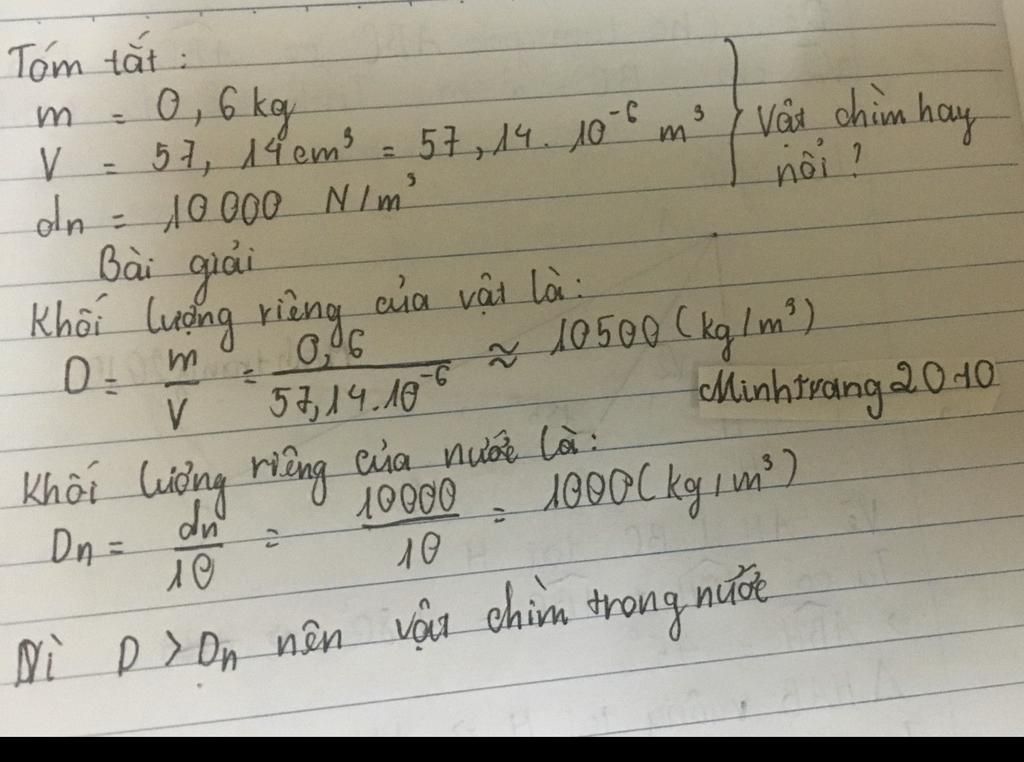 Tóm tắt:
m = 0,6 kg
V = 57,14 cm³ = 57,14. 10⁻⁶ m³
dn = 10000 N/m³
Vật chìm hay
nổi?
Bài giải
Khối lượng riêng của vật là:
D = m/V = 0,6/57,14.10⁻⁶ ≈ 10500 (kg/m³)
Minhtrang2010
Khối lượng riêng của nước là:
Dn = dn/10 = 10000/10 = 1000 (kg/m³)
Vì D > Dn nên vật chìm trong nước